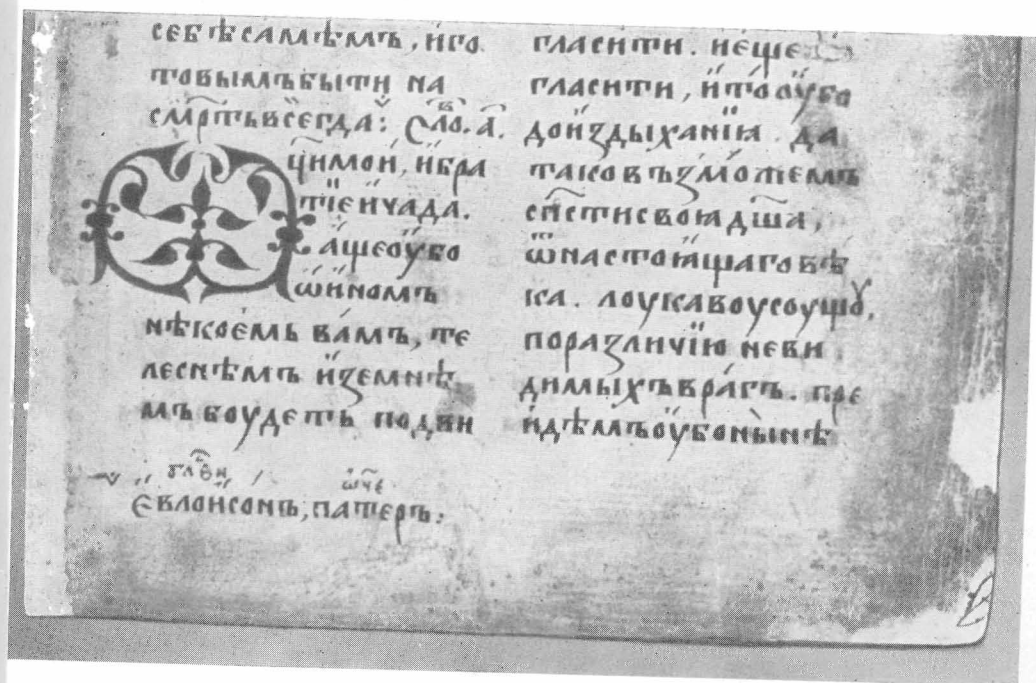 себѣ самѣмъ, и҆го
товымъ быти на
см҃рть всегда: Сло҃в. а҃.
Ѻц҃и мои, и҆ бра
тїе и҆ чада.
аще оу҆бо
ѿ и҆номъ
нѣкоемь вамъ, те
леснѣмъ и҆ земнѣ
мъ боудеть подви
гласити. не еще
гласити, и҆ то оу҆бо
до и҆здыханїꙗ. да
тако възможемъ
сп҃сти своꙗ дш҃а,
ѿ настоꙗщаго вѣ
ка. лоукавоу соущоу,
по различїю неви
димыхъ врагъ. пре
идѣмъ оу҆бо нынѣ
бл҃ви ѡ҃че
є҆влоисонъ, патеръ: